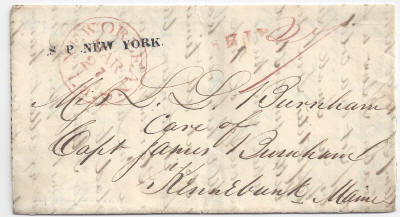 S. P. NEW YORK.
NEW YORK
MAR
SHIP
Miss L. L. Burnham
Care of
Capt James Burnham
Kennebunk Maine